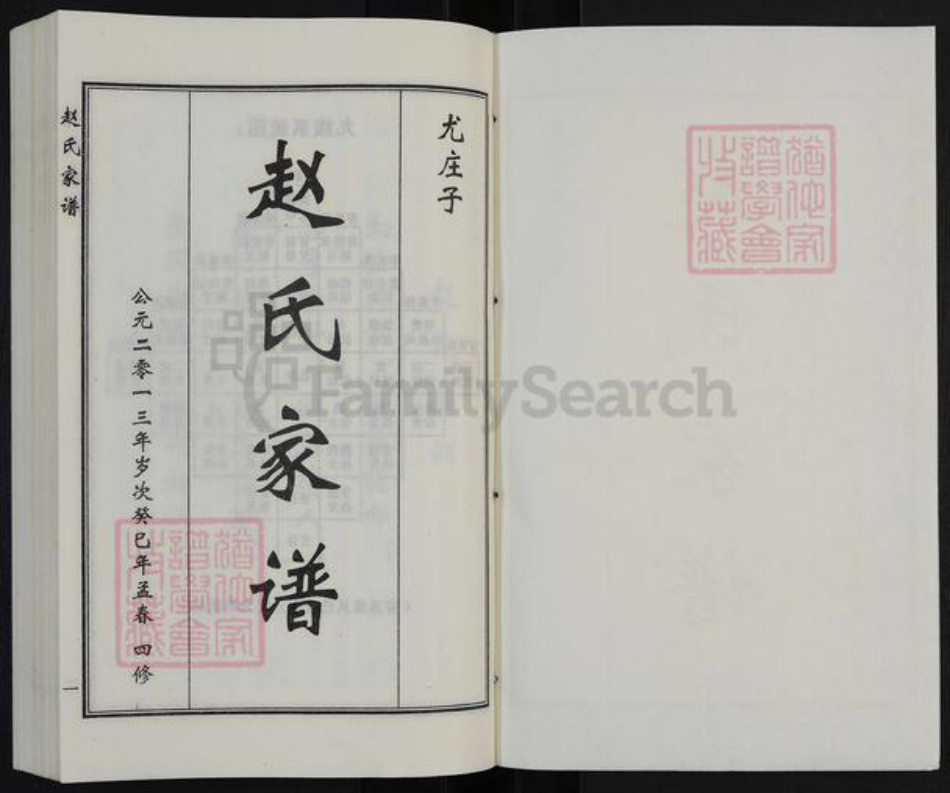 尤庄子
赵氏家谱
公元二零一三年岁次癸巳年孟春 四修
赵氏家谱
一
FamilySearch
猶他家
譜學會
收藏
猶他家
譜學會
收藏